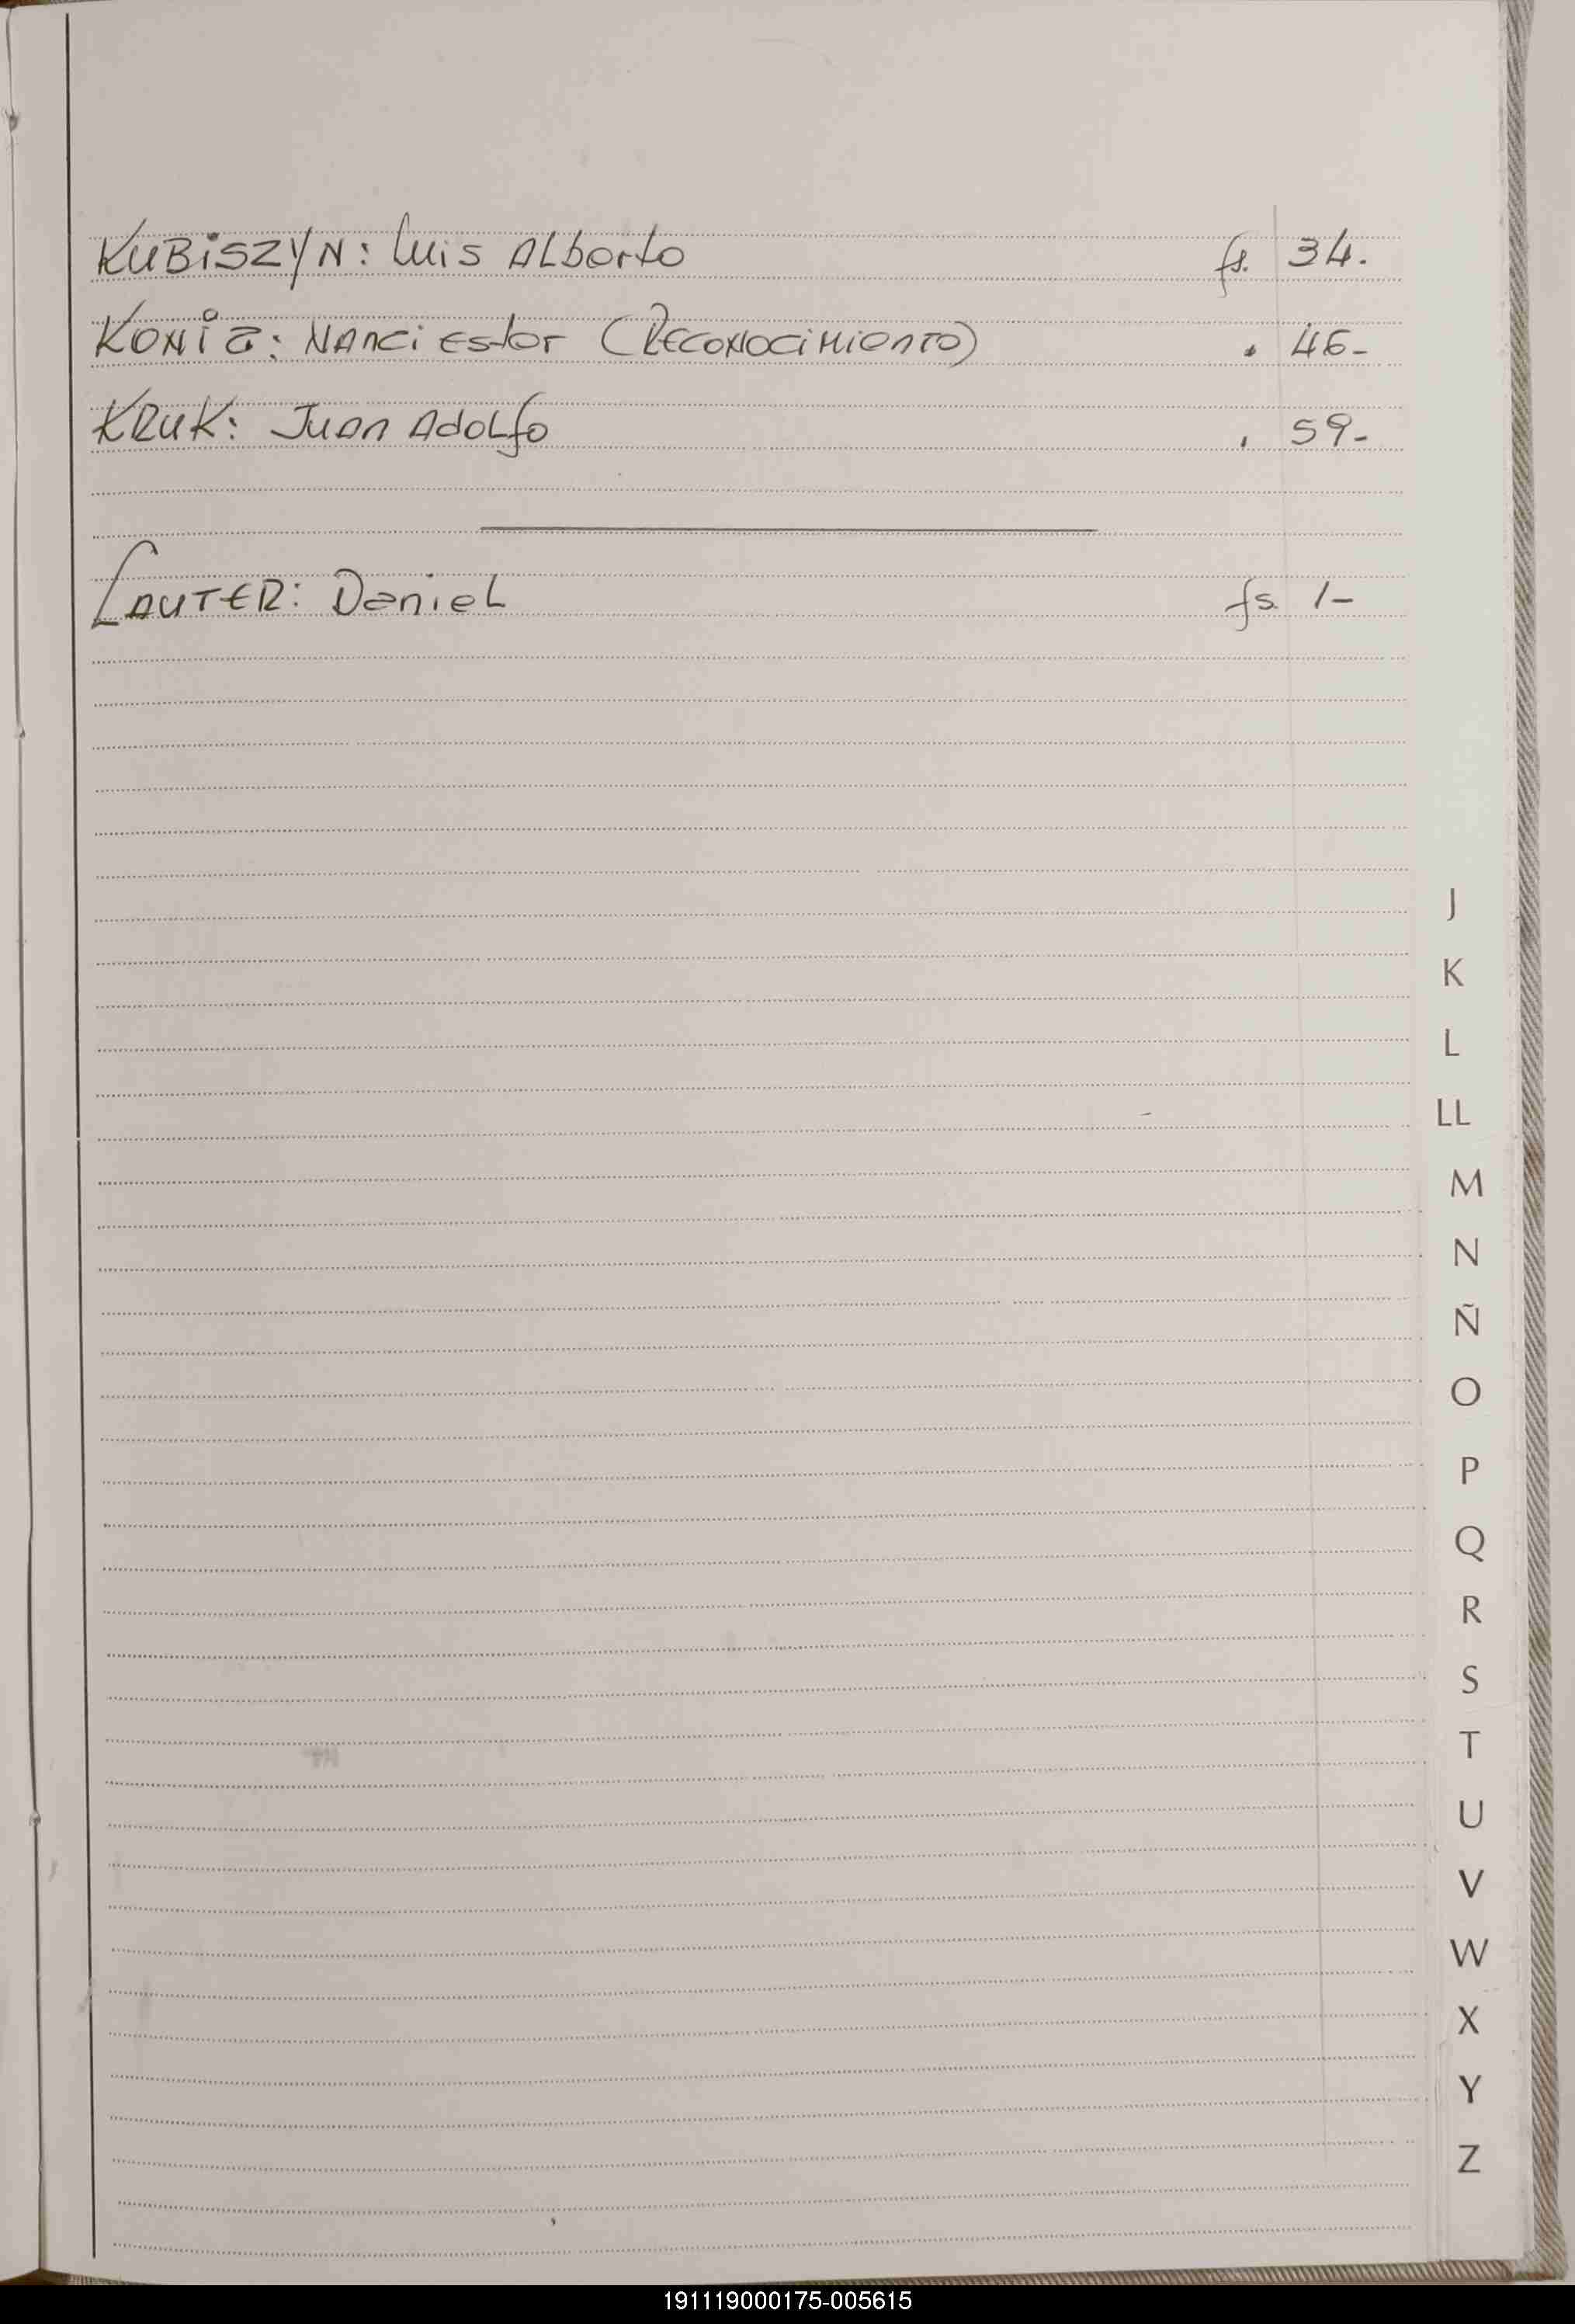 KUBISZYN: Luis Alberto fs. 34.
KONIG: Nanci Ester (Reconocimiento) " 46-
KRUK: Juan Adolfo " 59-
LAUTER: Daniel fs. 1-
J
K
L
LL
M
N
Ñ
O
P
Q
R
S
T
U
V
W
X
Y
Z
191119000175-005615